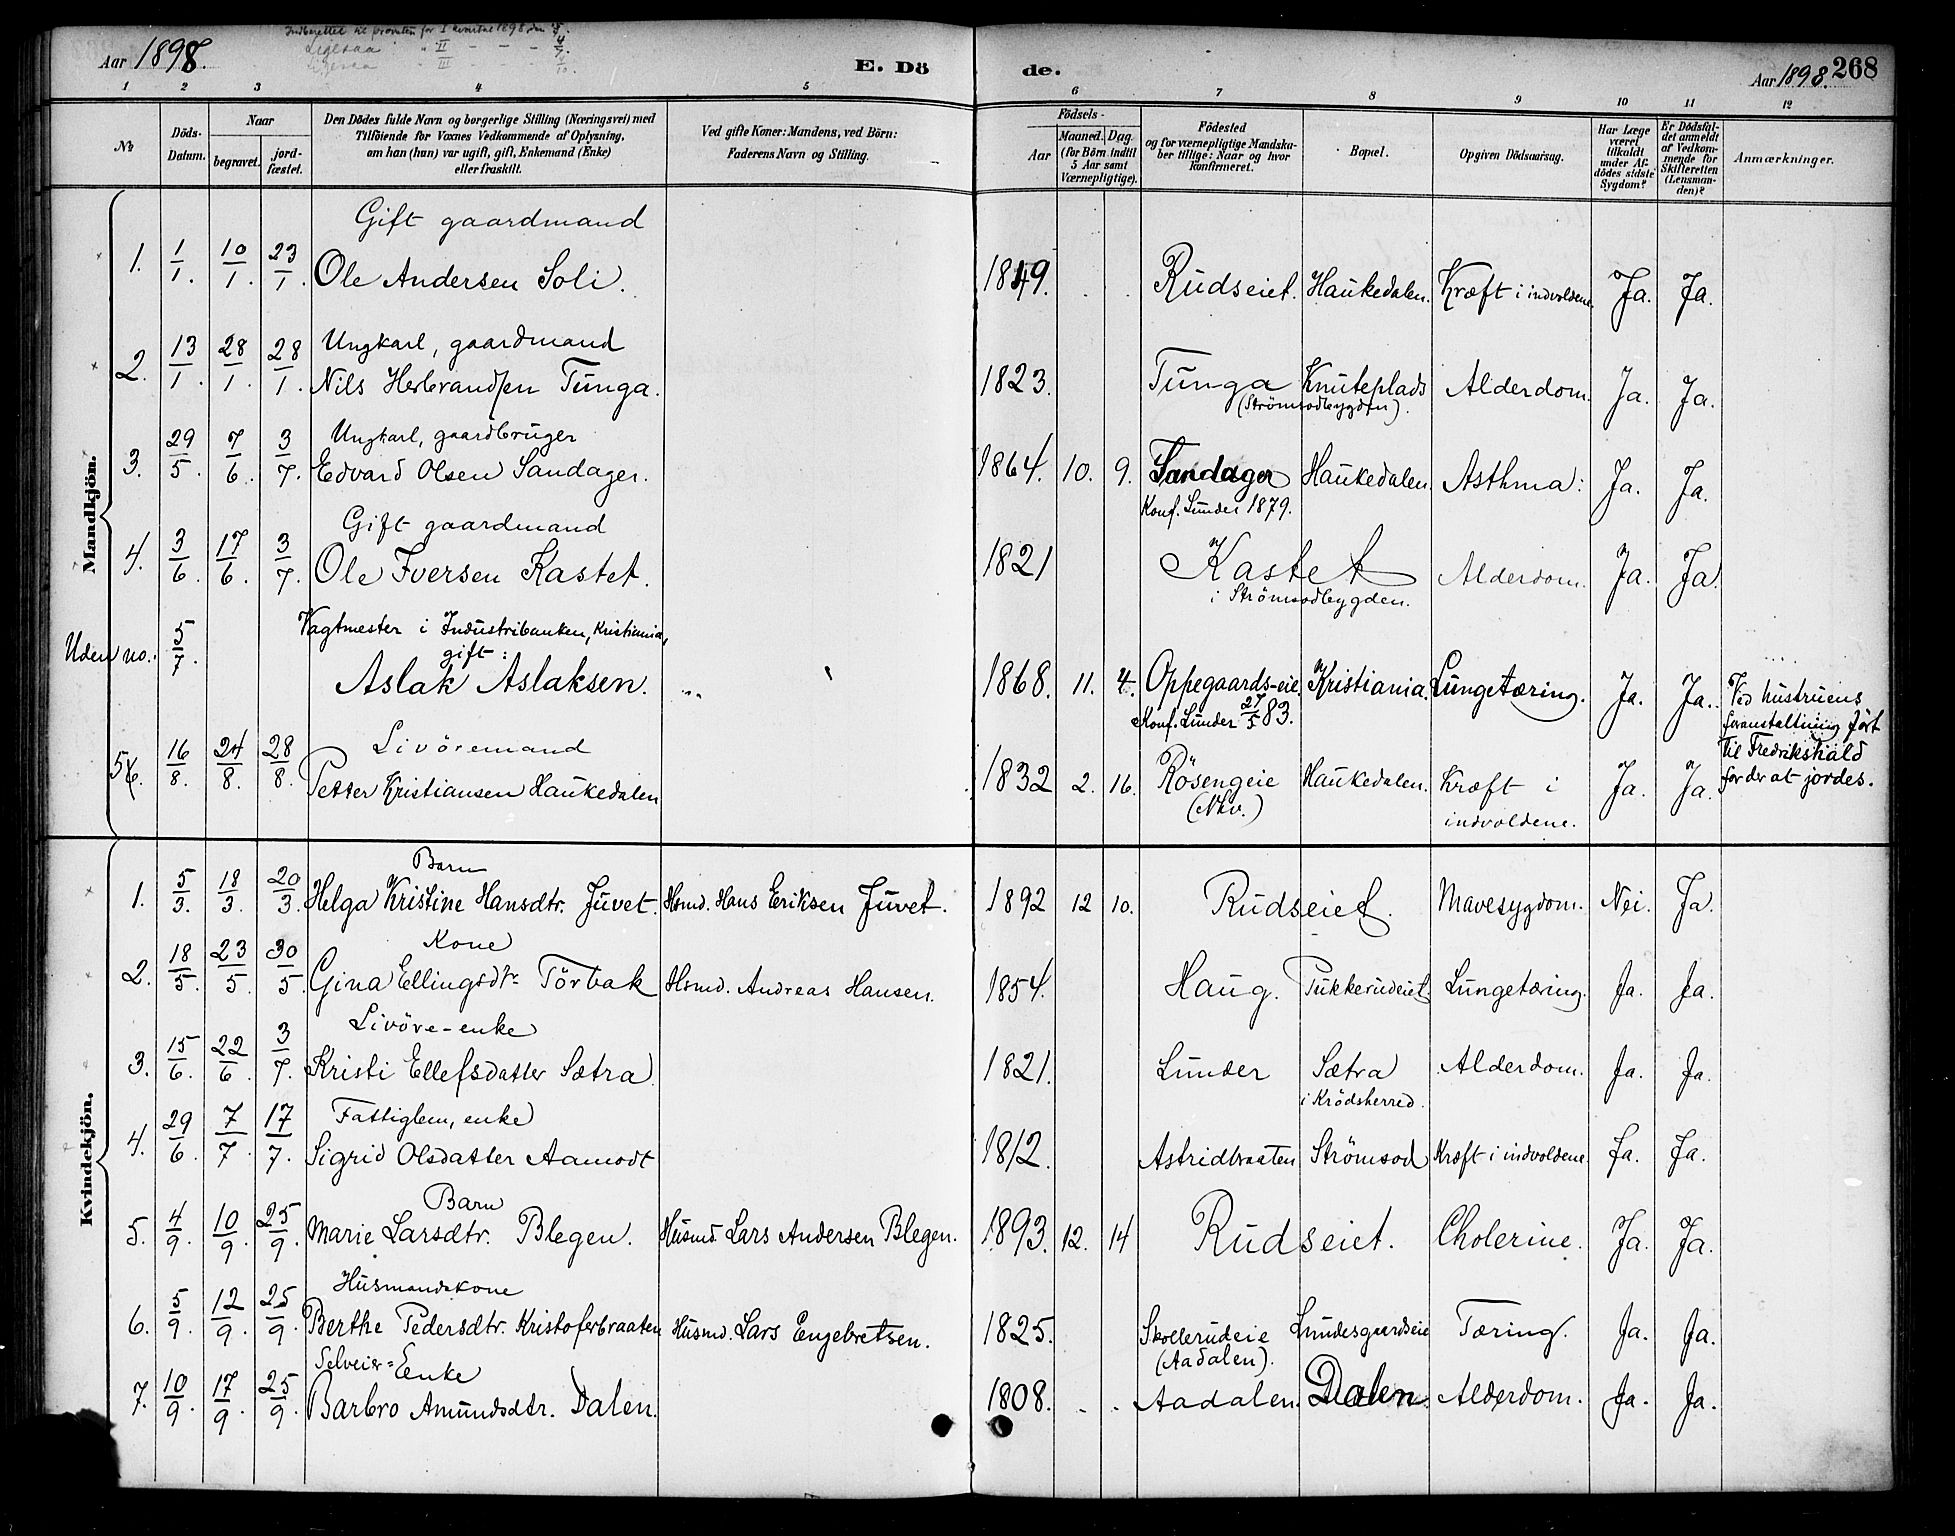 Aar 1898.
Indberettet til provsten for I kvartal 1898 den 5/4.
Ligesaa " II - - - 4/7.
Ligesaa " III - - - 4/10.
E. Dö
de.
Aar 1898.
268
1 2 3 4 5 6 7 8 9 10 11 12
№
Döds-Datum.
Naar
begravet.
jord-fæstet.
Den Dödes fulde Navn og borgerlige Stilling (Næringsvei) med
Tilföiende for Voxnes Vedkommende af Oplysning,
om han (hun) var ugift, gift, Enkemand (Enke)
eller fraskilt.
Ved gifte Koner: Mandens, ved Börn:
Faderens Navn og Stilling.
Födsels-
Aar
Maaned. Dag.
(for Börn indtil
5 Aar samt
Værnepligtige).
Födested
og for værnepligtige Mandska-
ber tillige: Naar og hvor
konfirmeret.
Bopæl.
Opgiven Dödsaarsag.
Har Læge
været
tilkaldt
under Af-
dödes sidste
Sygdom?
Er Dödsfal-
det anmeldt
af Vedkom-
mende for
Skifteretten
(Lensman-
den)?
Anmærkninger.
Mandkjön.
Gift gaardmand
1. 1/1. 10/1. 23/1. Ole Andersen Soli. 1849. Rudseiet. Haukedalen. Kræft i indvoldene. Ja. Ja.
Ungkarl, gaardmand
2. 13/1. 28/1. 28/1. Nils Herbrandsen Tunga. 1823. Tunga Knuteplads Alderdom. Ja. Ja.
(Strömsodbygden).
Ungkarl, gaardbruger
3. 29/5. 7/6. 3/7. Edvard Olsen Sandager. 1864. 10. 9. Sandager Haukedalen. Asthma: Ja. Ja.
Konf. Lunder 1879.
Gift gaardmand
4. 3/6. 17/6. 3/7. Ole Iversen Kastet. 1821 Kastet Alderdom. Ja. Ja
i Strömsodbygden.
Vagtmester i Industribanken, Kristiania,
gift:
Uden no. 5/7. Aslak Aslaksen. 1868. 11. 4. Oppegaards-eie Kristiania. Lungetæring. Ja. Ja.
Konf. Lunder 27/5 83.
Ved hustruens
foranstaltning fört
til Fredrikshald
for der at jordes.
Livöremand
5. 16/8. 24/8. 28/8. Petter Kristiansen Haukedalen 1832 2. 16. Rösengeie Haukedalen. Kræft i Ja. Ja.
(Nkv.) indvoldene.
Kvindekjön.
Barn
1. 5/3. 18/3. 20/3. Helga Kristine Hansdtr. Juvet. Hsmd. Hans Eriksen Juvet. 1892 12 10. Rudseiet. Mavesygdom. Nei. Ja.
Kone
2. 18/5. 23/5. 30/5. Gina Ellingsdtr. Törbak Hsmd. Andreas Hansen. 1854. Haug. Pukkerudeiet Lungetæring. Ja. Ja.
Livöre-enke
3. 15/6. 22/6. 3/7. Kristi Ellefsdatter Sætra 1821. Lunder Sætra Alderdom. Ja. Ja.
i Krödsherred.
Fattiglem, enke
4. 29/6. 7/7. 17/7. Sigrid Olsdatter Aamodt 1812. Astridbraaten Strömsod Kræft i indvoldene. Ja. Ja.
Barn
5. 4/9. 10/9. 25/9. Marie Larsdtr. Blegen. Husmd. Lars Andersen Blegen. 1893. 12. 14 Rudseiet. Cholerine. Ja. Ja.
Husmandskone
6. 5/9. 12/9. 25/9. Berthe Pedersdtr. Kristoferbraaten Husmd. Lars Engebretsen. 1825. Skollerudeie Lundesgaardseie Tæring. Ja. Ja.
(Aadalen).
Selveier-Enke
7. 10/9. 17/9. 25/9. Barbro Amundsdtr. Dalen. 1808. Aadalen. Dalen. Alderdom. Ja. Ja.